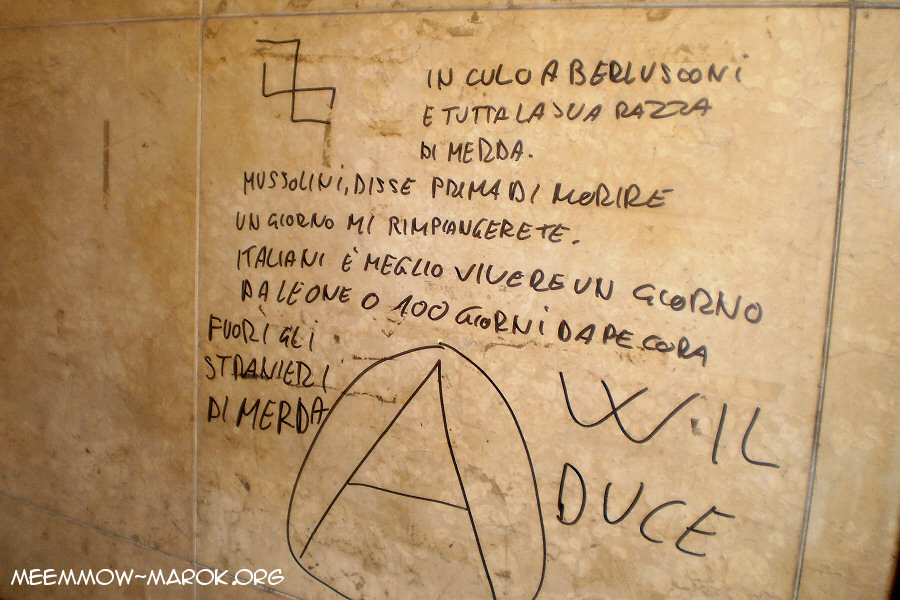 IN CULO A BERLUSCONI
E TUTTA LA SUA RAZZA
DI MERDA.
MUSSOLINI, DISSE PRIMA DI MORIRE
UN GIORNO MI RIMPIANGERETE.
ITALIANI È MEGLIO VIVERE UN GIORNO
DA LEONE O 100 GIORNI DA PECORA
FUORI GLI
STRANIERI
DI MERDA
A
W·IL
DUCE
MEEMMOW-MAROK.ORG